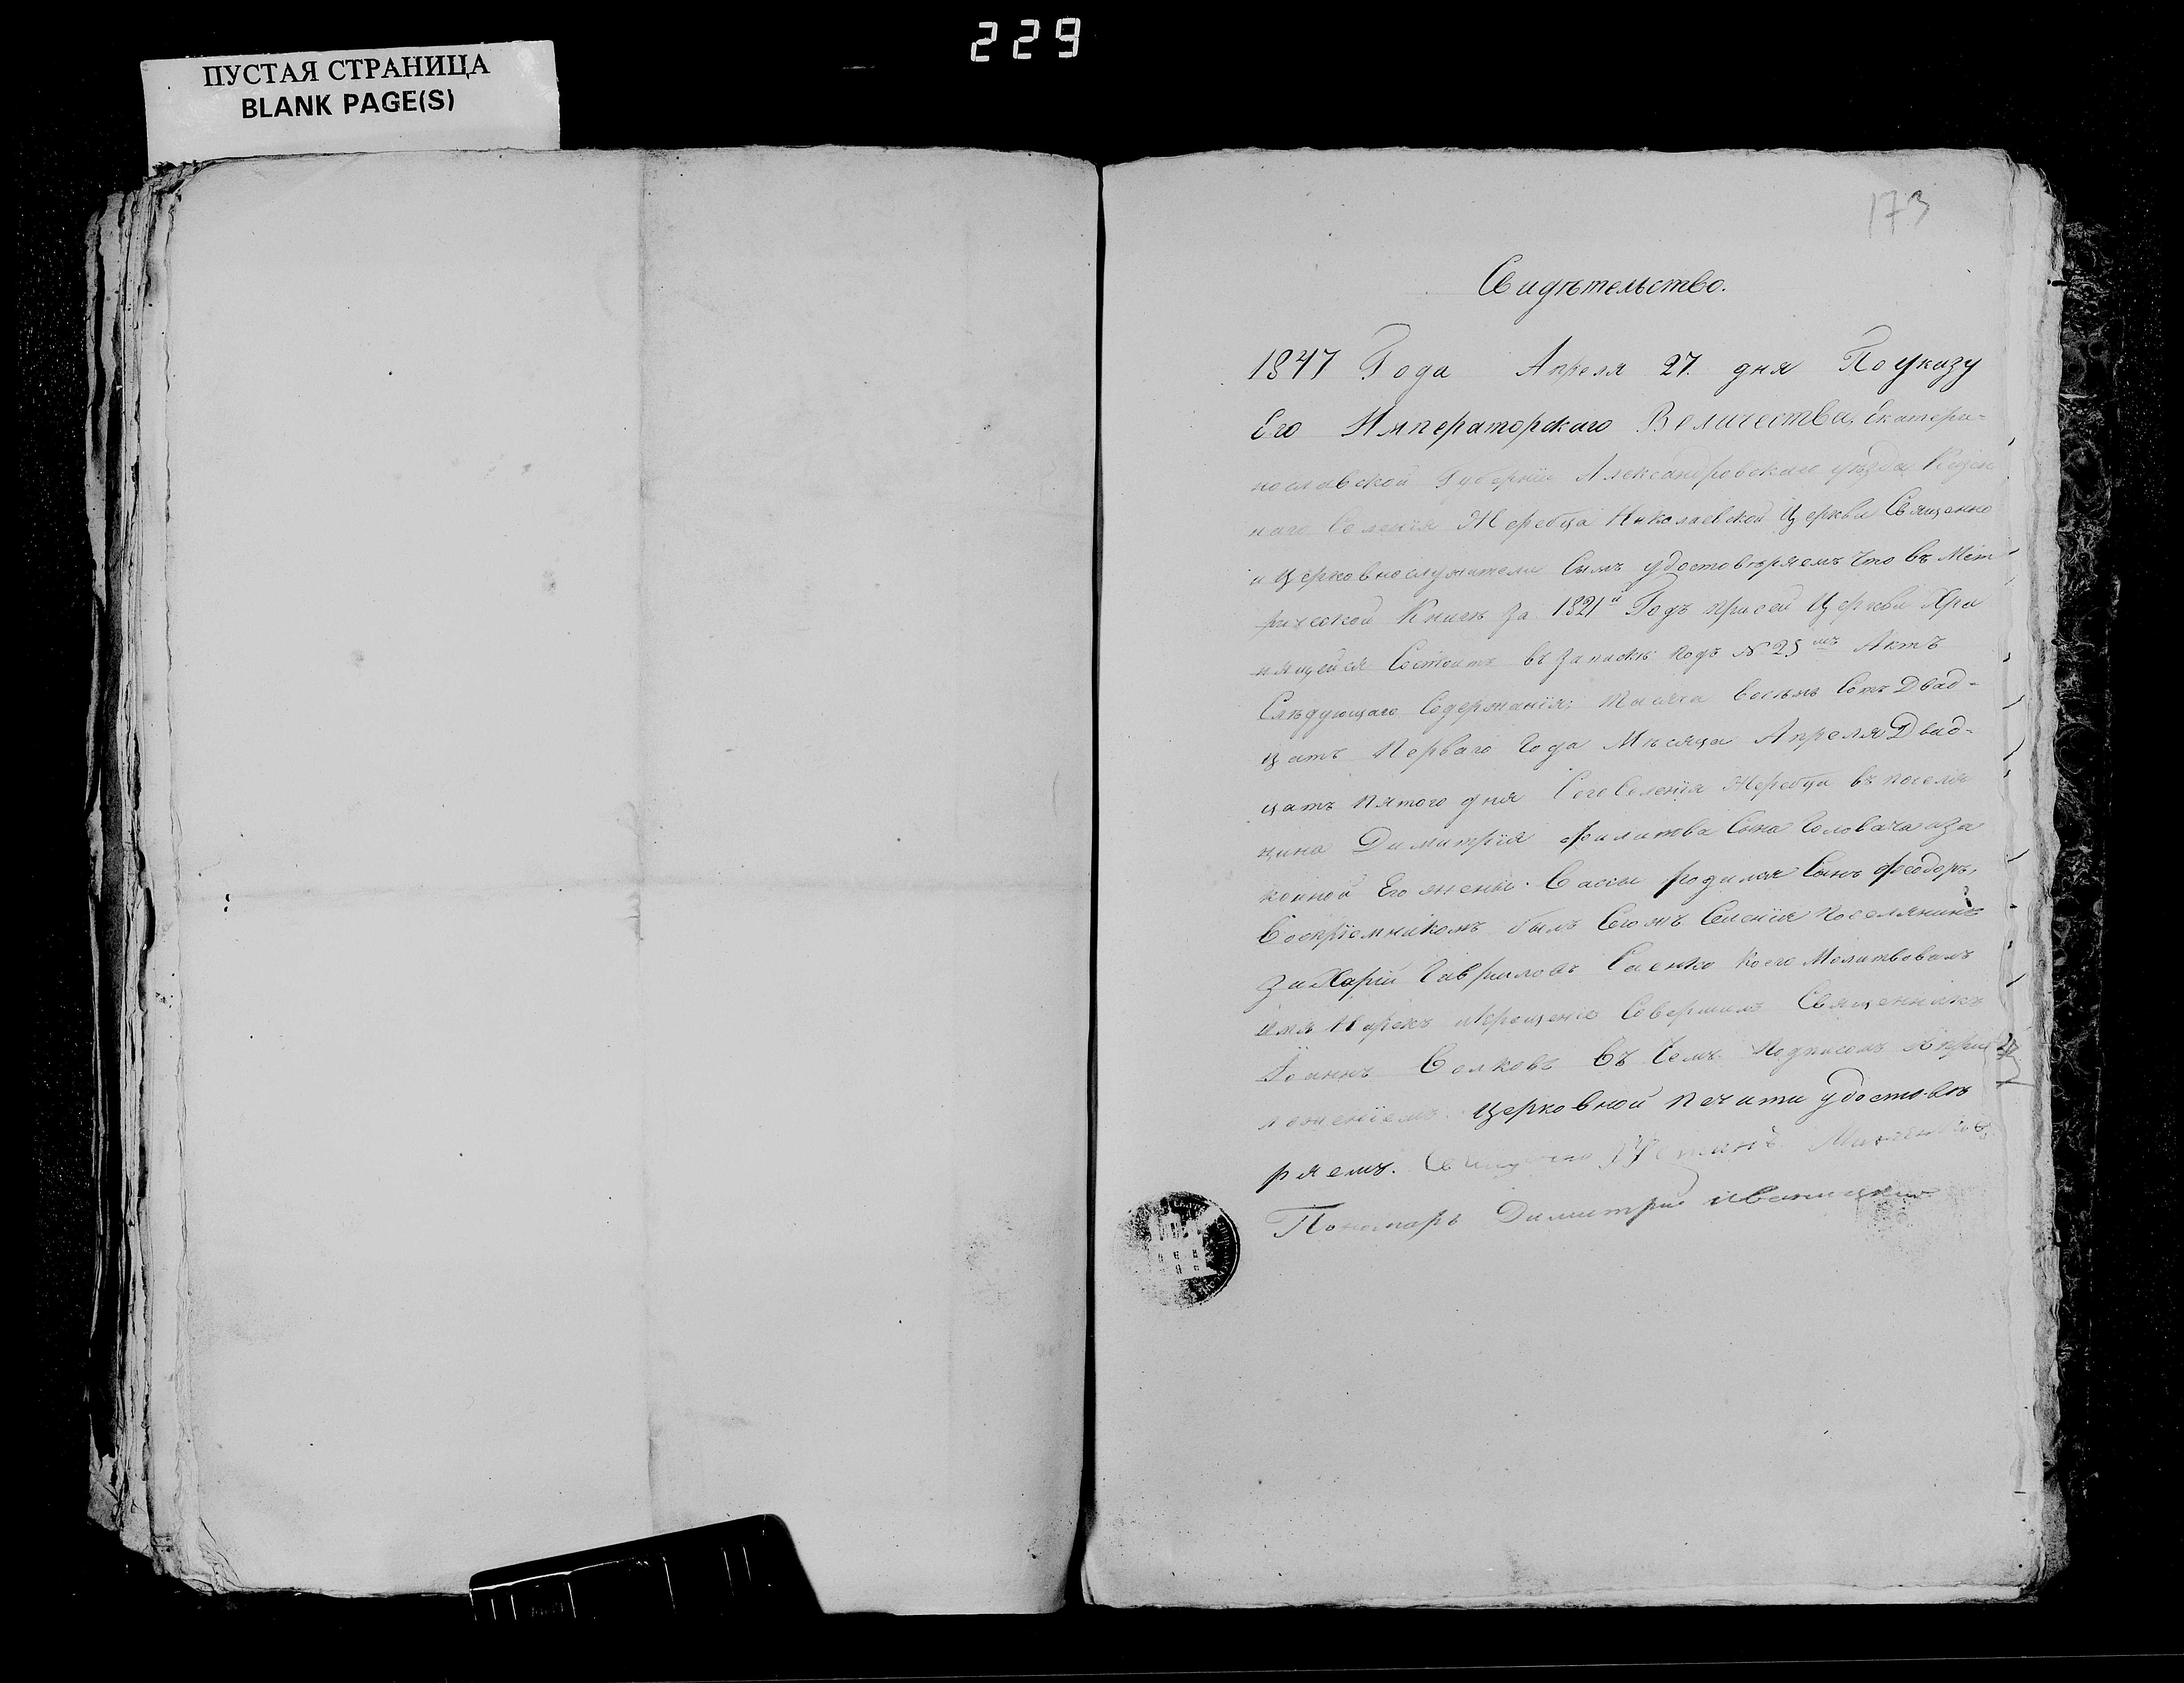 229
ПУСТАЯ СТРАНИЦА
BLANK PAGE(S)
173
Свидѣтельство.
1847 Года Апреля 27. дня Поуказу
Его Императорскаго Величества, Екатери-
нославской Губерніи Александровскаго уѣзда Казен
наго Селенія Жеребца Николаевской Церкви Священно
и Церковнослужители Симъ удостовѣряемъ Что въ Мет
рической Книгѣ За 1821й Годъ присей Церкви Хра
нящейся Состоитъ въ запискѣ подъ №25мъ Актъ
Слѣдующаго Содержанія: тысяча восемь Сотъ Двад-
цать Перваго Года Мѣсяца Апреля Двад-
цать пятого дня Сего Селенія Жеребца въ поселя
нина Димитрія Филипова Сына Головача иза
конной Его жены Вассы родился Сынъ Феодоръ,
Воспріемникомъ былъ Сегожъ Селенія Поселянинъ
Захарій Гавриловъ Саенко Коего Молитвовалъ
имя Нарекъ икрещеніе Совершилъ Священникъ
Іоаннъ Волковъ Въ Чемъ Подписомъ Сприе
ложеніемъ Церковной Печати удостовѣ
ряемъ.
Пономарь Димитрий Иваницкий